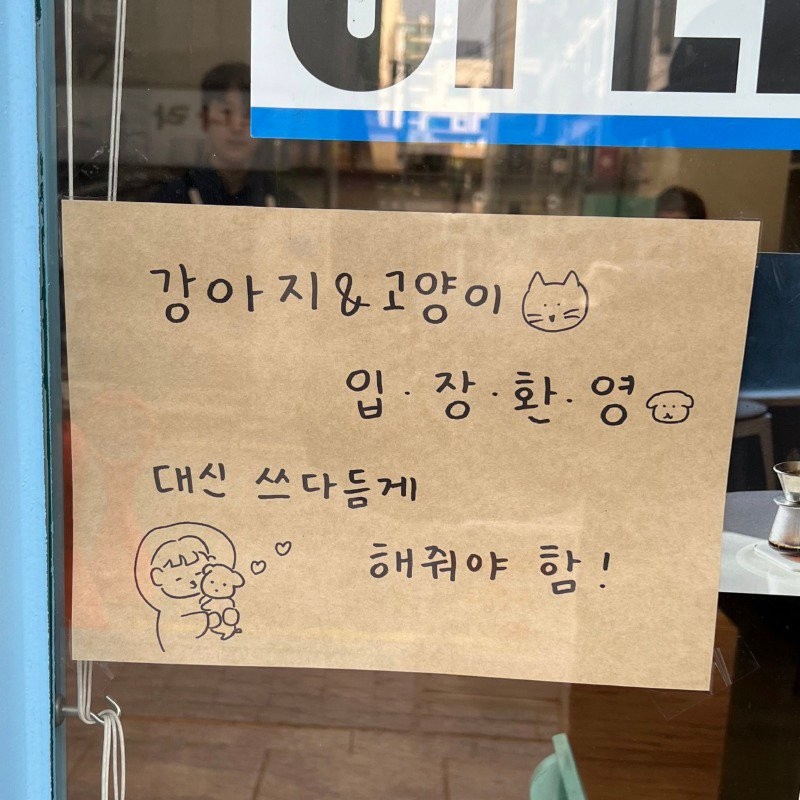 OPEN
강아지 & 고양이
입·장·환·영
대신 쓰다듬게
해줘야 함!